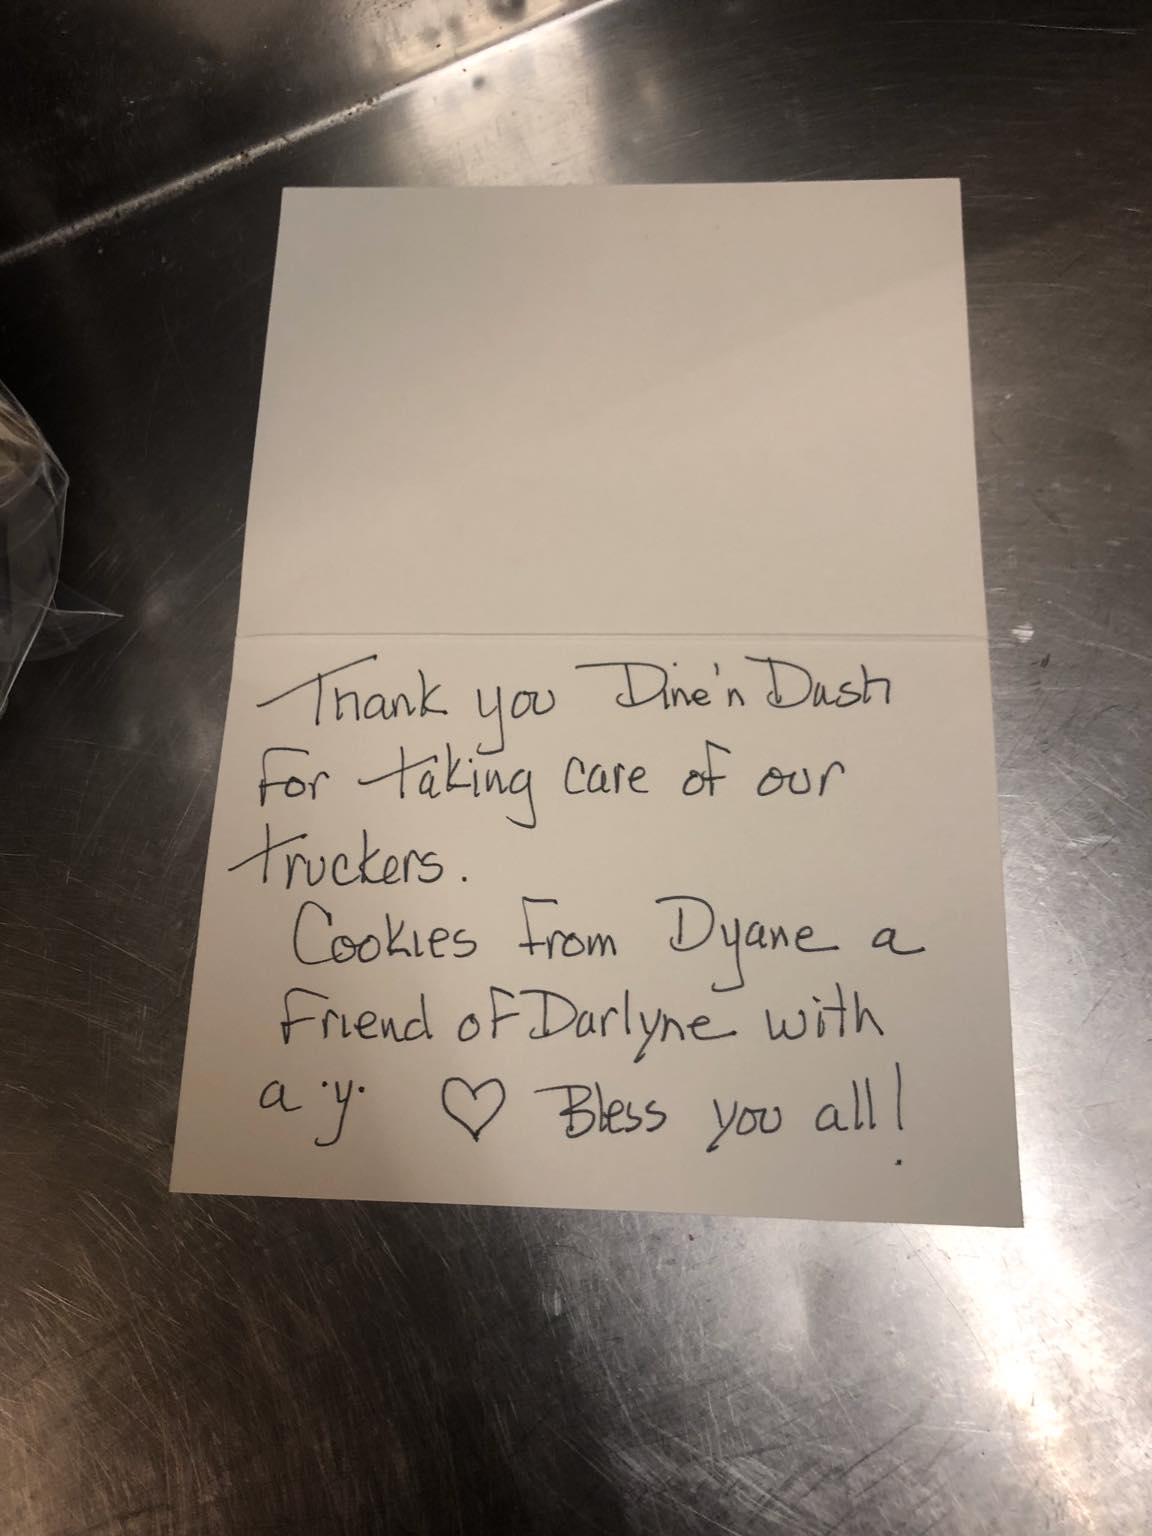 Thank you Dine'n Dash
for taking care of our
truckers.
Cookies from Dyane a
friend of Darlyne with
a "y" ♡ Bless you all!